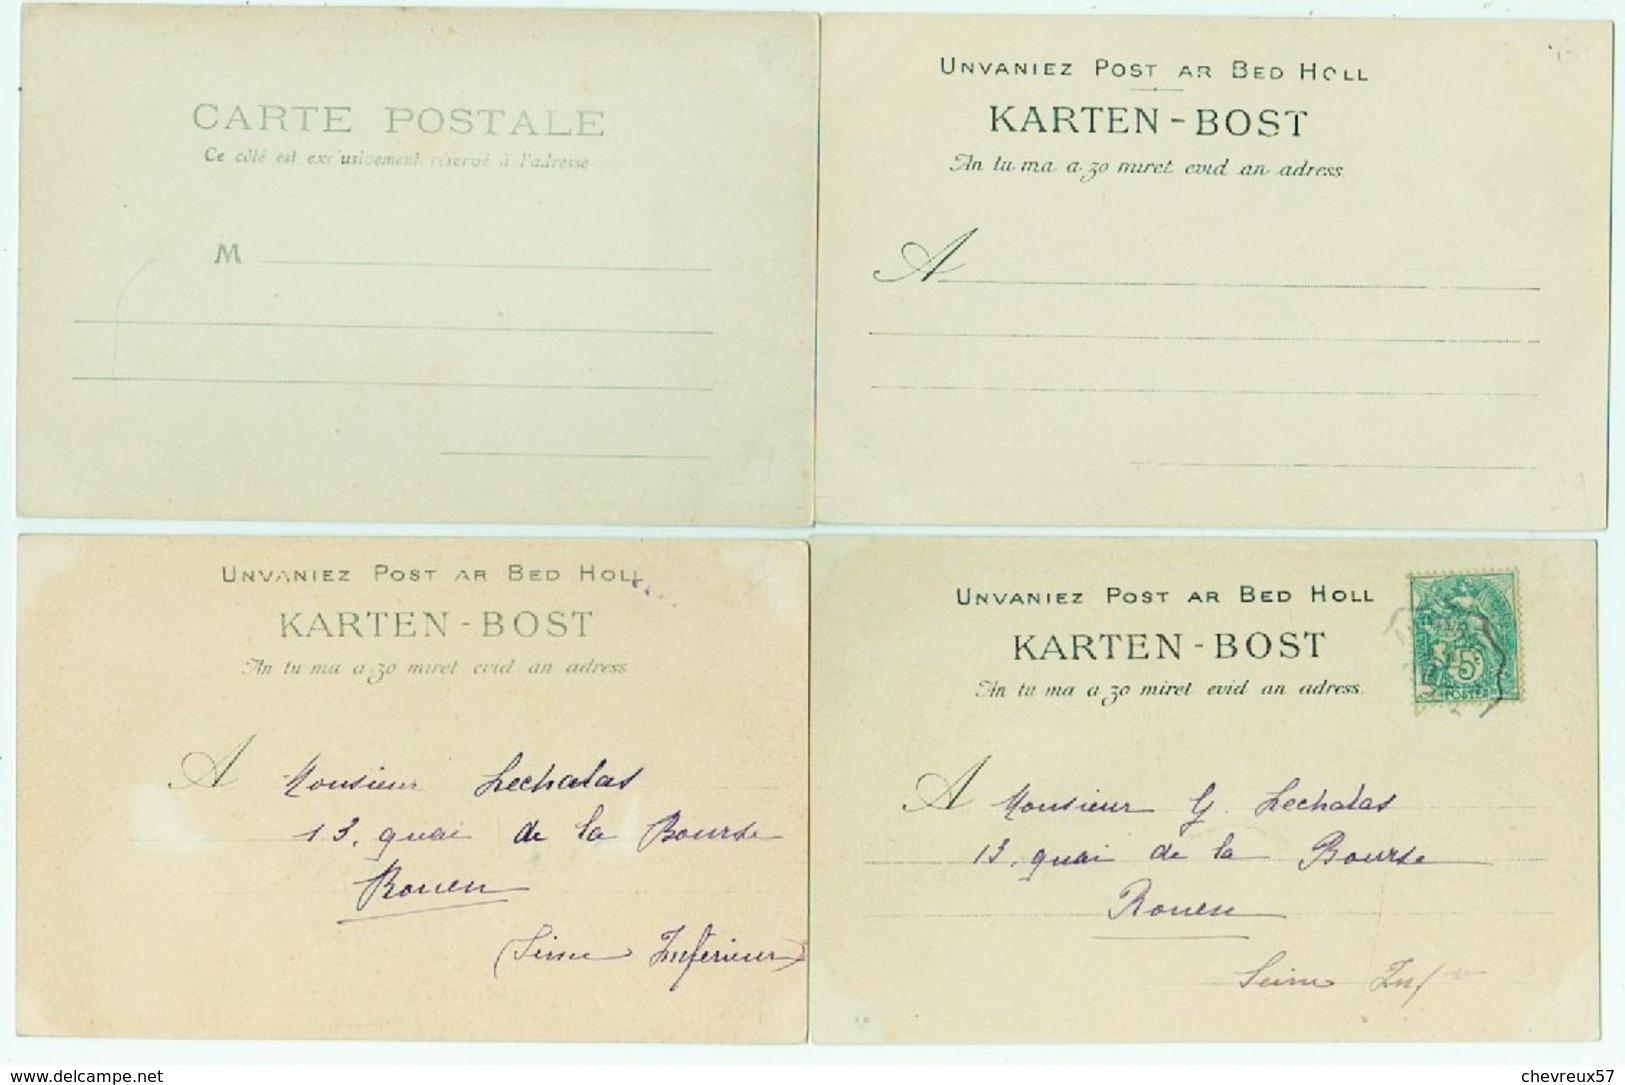 CARTE POSTALE
Ce côté est exclusivement réservé à l'adresse
M
UNVANIEZ POST AR BED HOLL
KARTEN-BOST
An tu ma a zo miret evid an adress.
A
29
UNVANIEZ POST AR BED HOLL
KARTEN-BOST
An tu ma a zo miret evid an adress
A Monsieur Lechalas
13, quai de la Bourse
Rouen
(Seine Inférieure)
UNVANIEZ POST AR BED HOLL
KARTEN-BOST
An tu ma a zo miret evid an adress.
5
POSTES
A Monsieur G. Lechalas
13, quai de la Bourse
Rouen
Seine Inf
www.delcampe.net
chevreux57